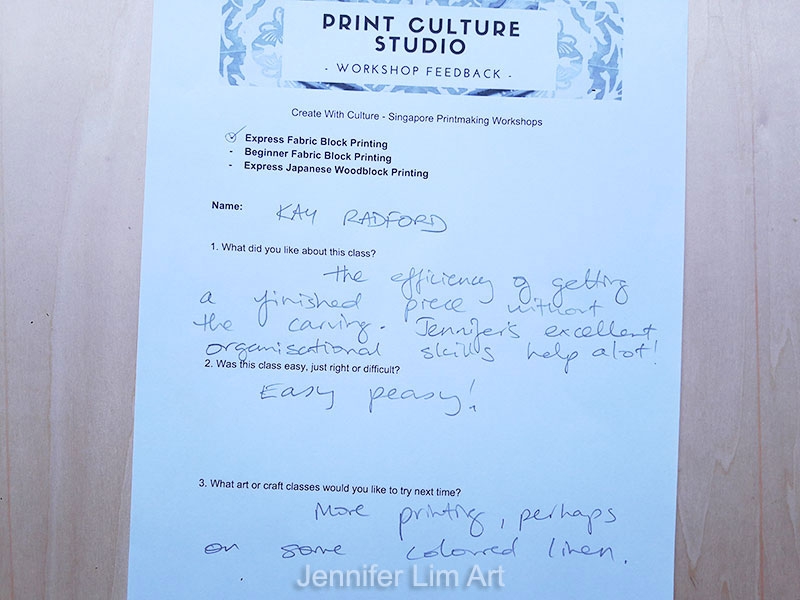 PRINT CULTURE
STUDIO
- WORKSHOP FEEDBACK -
Create With Culture - Singapore Printmaking Workshops
Express Fabric Block Printing
- Beginner Fabric Block Printing
- Express Japanese Woodblock Printing
Name: KAY RADFORD
1. What did you like about this class?
the efficiency of getting
a finished piece without
the carving. Jennifer's excellent
organisational skills help alot!
2. Was this class easy, just right or difficult?
Easy peasy!
3. What art or craft classes would you like to try next time?
More printing, perhaps
on some coloured linen.
Jennifer Lim Art